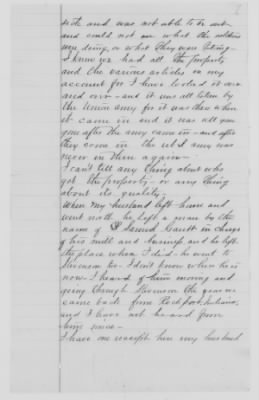 side and was not able to be out
and could not see what the soldiers
were doing, or what they were taking
I know we had all the property
and the various articles in my
account for I have looked it over
and over - and it was all taken by
the Union army for it was there when
it came in and it was all gone
gone after the army came in - and after
they came in the rebel army was
never in there again -
I can't tell any thing about who
got the property - or any thing
about its quality -
When my husband left home and
went north he left a man by the
name of Samuel Gantt in charge
of his mill and business and he left
the place when I did - he went to
Stevenson too - I don't know where he is
now - I heard of him moving and
going through Stevenson the year we
came back from Rockport, Indiana,
and I have not heard from
him since -
I have one receipt here my husband